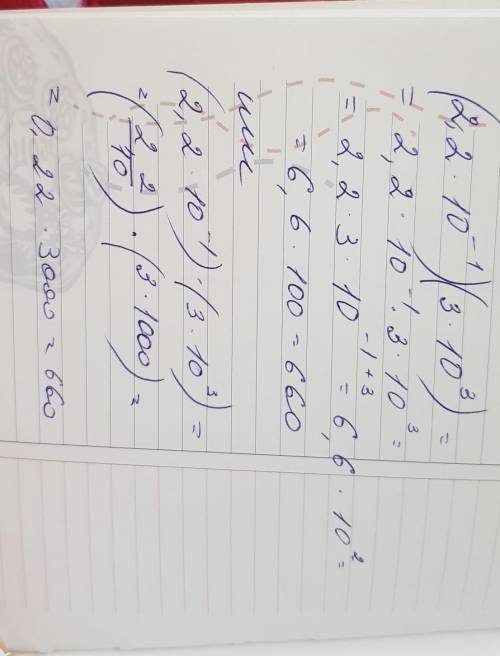 (2,2 · 10⁻¹)(3 · 10³) =
= 2,2 · 10⁻¹ · 3 · 10³ =
= 2,2 · 3 · 10⁻¹⁺³ = 6,6 · 10² =
= 6,6 · 100 = 660
или
(2,2 · 10⁻¹) · (3 · 10³) =
= (2,2/10) · (3 · 1000) =
= 0,22 · 3000 = 660